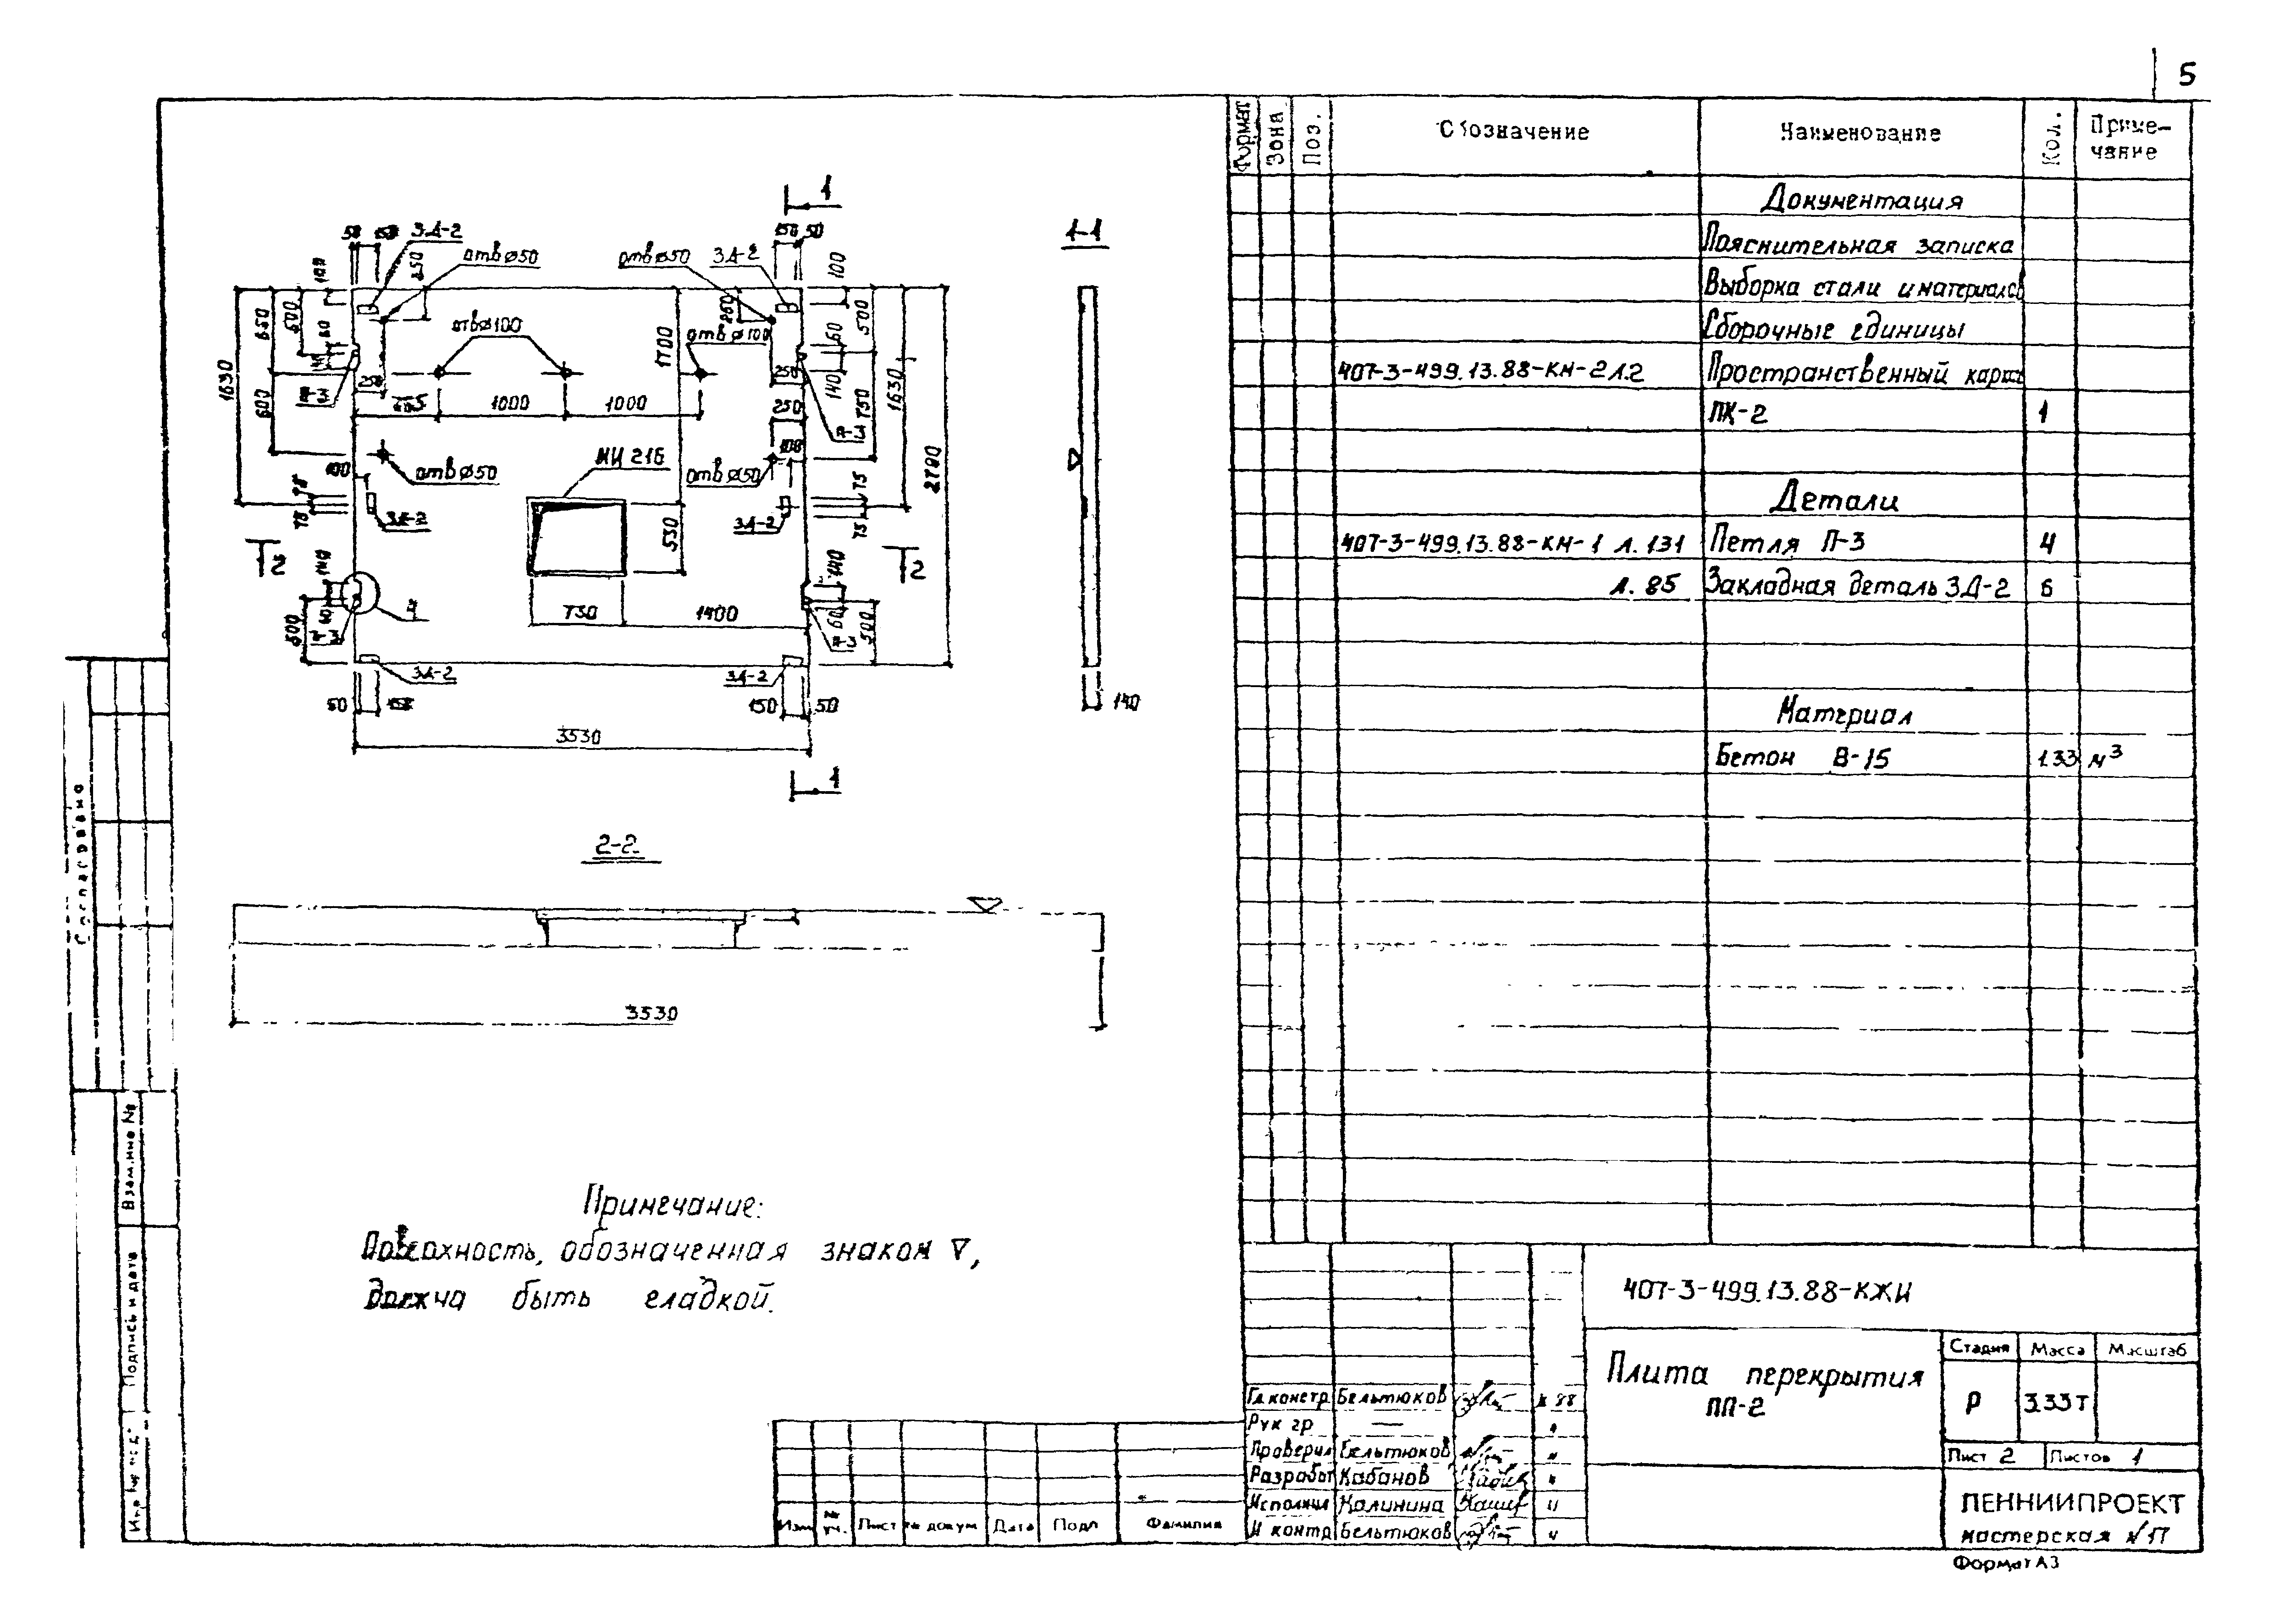 5
Формат
Зона
Поз.
Обозначение
Наименование
Кол.
Приме-
чание
Документация
Пояснительная записка
Выборка стали и материалов
Сборочные единицы
407-3-499.13.88-КН-2 л.2 Пространственный каркас
ПК-2 1
Детали
407-3-499.13.88-КН-1 л.131 Петля П-3 4
л.85 Закладная деталь ЗД-2 6
Материал
Бетон В-15 1.33 м³
1
1-1
50 150 ЗД-2
отв ø50
отв ø50 ЗД-2
150 50
100
250
100
250
650
500
60
отв ø100
1700
отв ø100
60
500
1630
600
250
1000
1000
250
140
750
1630
250
100
МИ 216
100
отв ø50
отв ø50
2780
75
75
ЗД-2
ЗД-2
75
75
530
2
2
140
140
60
60
500
500
730
1400
ЗД-2
ЗД-2
50 150
150 50
140
3530
1
2-2
3530
Примечание:
Поверхность, обозначенная знаком ∇,
должна быть гладкой.
Согласовано
Взам.инв №
Подпись и дата
Изм
Лист
№ докум
Дата
Подп
Фамилия
407-3-499.13.88-КЖИ
Плита перекрытия
ПП-2
Стадия Масса Масштаб
Р 3.33 т
Лист 2 Листов 1
ЛЕННИИПРОЕКТ
мастерская №17
Формат А3
Гл.констр. Бельтюков 88
Рук гр —
Проверил Бельтюков
Разработ Кабанов
Исполнил Калинина
Н контр Бельтюков